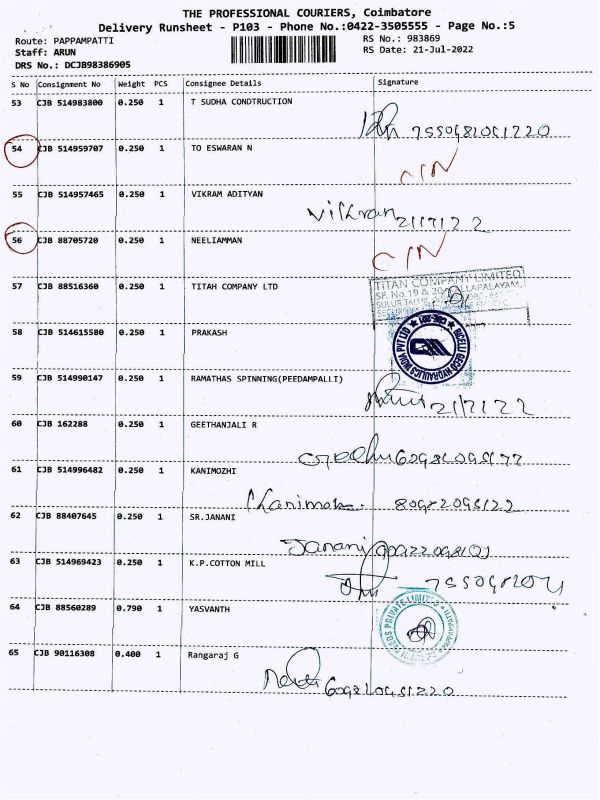 THE PROFESSIONAL COURIERS, Coimbatore
Delivery Runsheet - P103 - Phone No.:0422-3505555 - Page No.:5
Route: PAPPAMPATTI RS No.: 983869
Staff: ARUN RS Date: 21-Jul-2022
DRS No.: DCJB98386905
S No Consignment No Weight PCS Consignee Details Signature
53 CJB 514983800 0.250 1 T SUDHA CONDTRUCTION
54 CJB 514959707 0.250 1 TO ESWARAN N C/N
55 CJB 514957465 0.250 1 VIKRAM ADITYAN Vikram 21/7/22
56 CJB 88705720 0.250 1 NEELIAMMAN C/N
57 CJB 88516360 0.250 1 TITAH COMPANY LTD TITAN COMPANY LIMITED
58 CJB 514615580 0.250 1 PRAKASH
59 CJB 514990147 0.250 1 RAMATHAS SPINNING(PEEDAMPALLI) 21/7/22
60 CJB 162288 0.250 1 GEETHANJALI R
61 CJB 514996482 0.250 1 KANIMOZHI
62 CJB 88407645 0.250 1 SR.JANANI Janani
63 CJB 514969423 0.250 1 K.P.COTTON MILL
64 CJB 88560289 0.790 1 YASVANTH
65 CJB 90116308 0.400 1 Rangaraj G